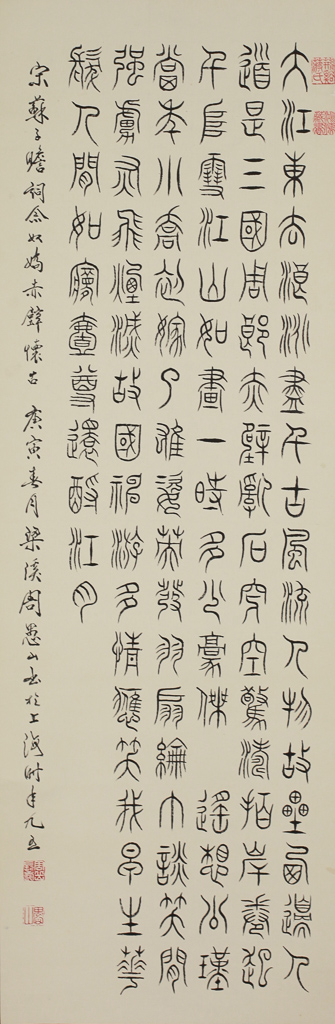 大江東去浪淘盡千古風流人物故壘西邊人
道是三國周郎赤壁亂石穿空驚濤拍岸卷起
千堆雪江山如畫一時多少豪傑 遙想公瑾
當年小喬初嫁了雄姿英發羽扇綸巾談笑間
强虜灰飛煙滅故國神游多情應笑我早生華
髮人間如夢壹尊還酹江月
宋蘇子瞻詞念奴嬌赤壁懷古 庚寅春月梁溪周愚山書於上海時年九五